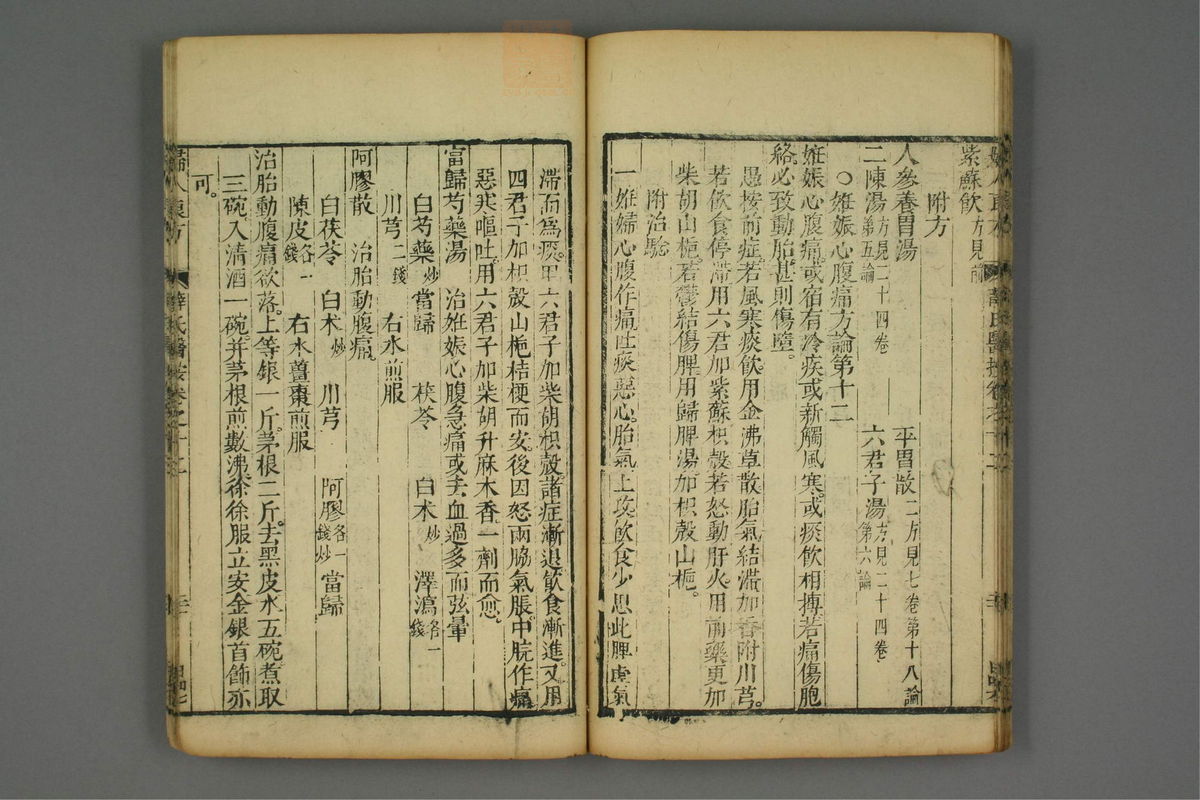 附方
紫蘇飲方見前
人參養胃湯　平胃散二方見七卷第十八論
二陳湯方見二十四卷第五論　六君子湯方見二十四卷第六論
○妊娠心腹痛方論第十二
妊娠心腹痛或宿有冷疾或新觸風寒或痰飲相搏若痛傷胞
絡必致動胎甚則傷墮。
愚按前症若風寒痰飲用金沸草散胎氣結滯加香附川芎。
若飲食停滯用六君加紫蘇枳殼若怒動肝火用前藥更加
柴胡山梔若鬱結傷脾用歸脾湯加枳殼山梔。
附治驗
一妊婦心腹作痛吐痰惡心胎氣上攻飲食少思此脾虛氣
滯而為痰用六君子加柴胡枳殼諸症漸退飲食漸進又用
四君子加枳殼山梔桔梗而安後因怒兩脇氣脹中脘作痛
惡寒嘔吐用六君子加柴胡升麻木香一劑而愈。
當歸芍藥湯　治妊娠心腹急痛或去血過多而弦暈
白芍藥炒　當歸　茯苓　白朮炒　澤瀉各一錢
川芎二錢　右水煎服
阿膠散　治胎動腹痛
白茯苓　白朮炒　川芎　阿膠各一錢炒　當歸
陳皮各一錢　右水薑棗煎服
治胎動腹痛欲落上等銀一斤茅根二斤去黑皮水五碗煮取
三碗入清酒一碗并茅根煎數沸徐徐服立安金銀首飾亦
可。
婦人良方　薛氏醫按卷之十二